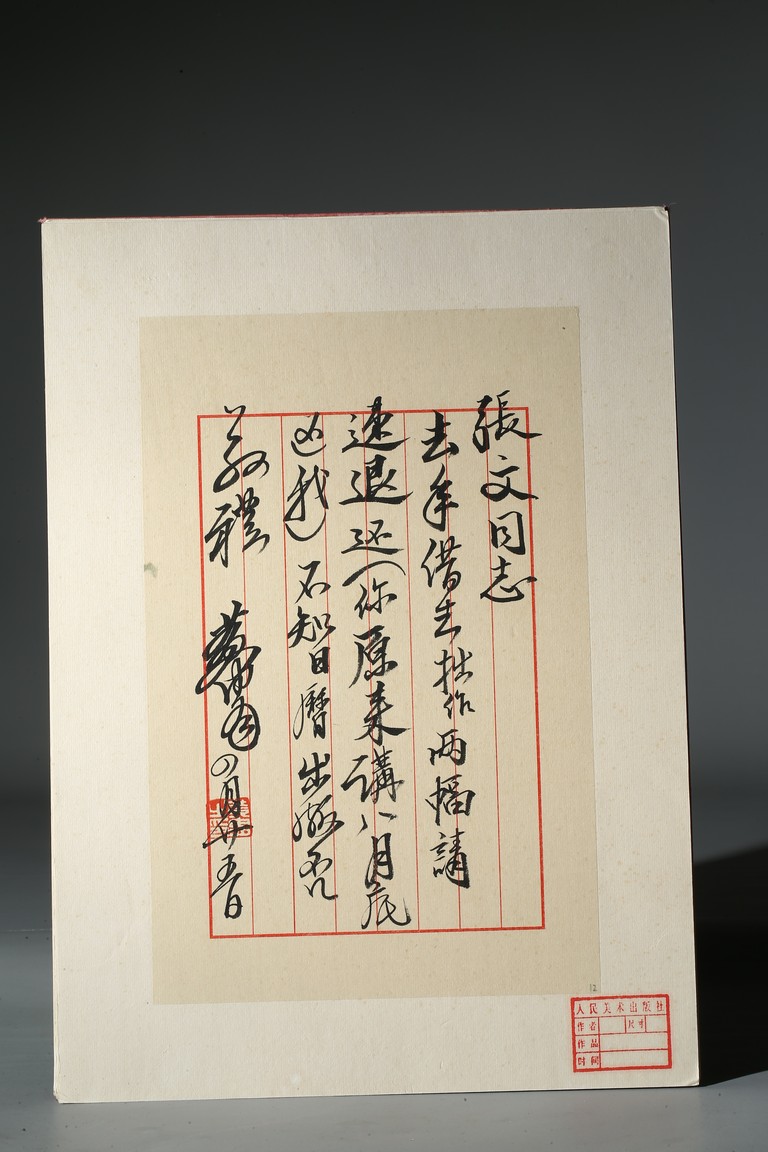 張文同志
去年借去拙作两幅請
速退还(你原来講八月底
还我)不知日曆出版否
敬禮 黄胄 四月廿五日
12
人民美术出版社
作者 尺寸
作品
时间